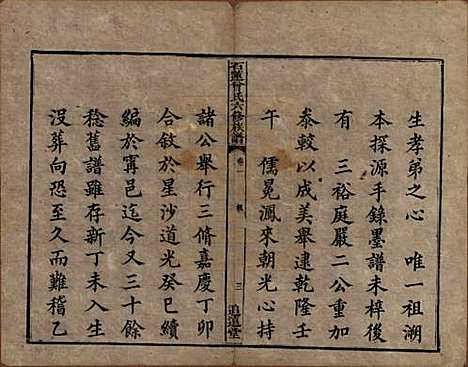 生孝弟之心　唯一祖溯
本探源手錄墨譜未梓後
有　三裕庭嚴二公重加
泰較以成美舉逮乾隆壬
午　儒冕㵎來朝光心持
石蓮曾氏六修族譜
卷一
三
追遠堂
諸公舉行三脩嘉慶丁卯
合敘於星沙道光癸巳續
編於甯邑迄今又三十餘
稔舊譜雖存新丁未入生
沒葬向恐至久而難稽乙